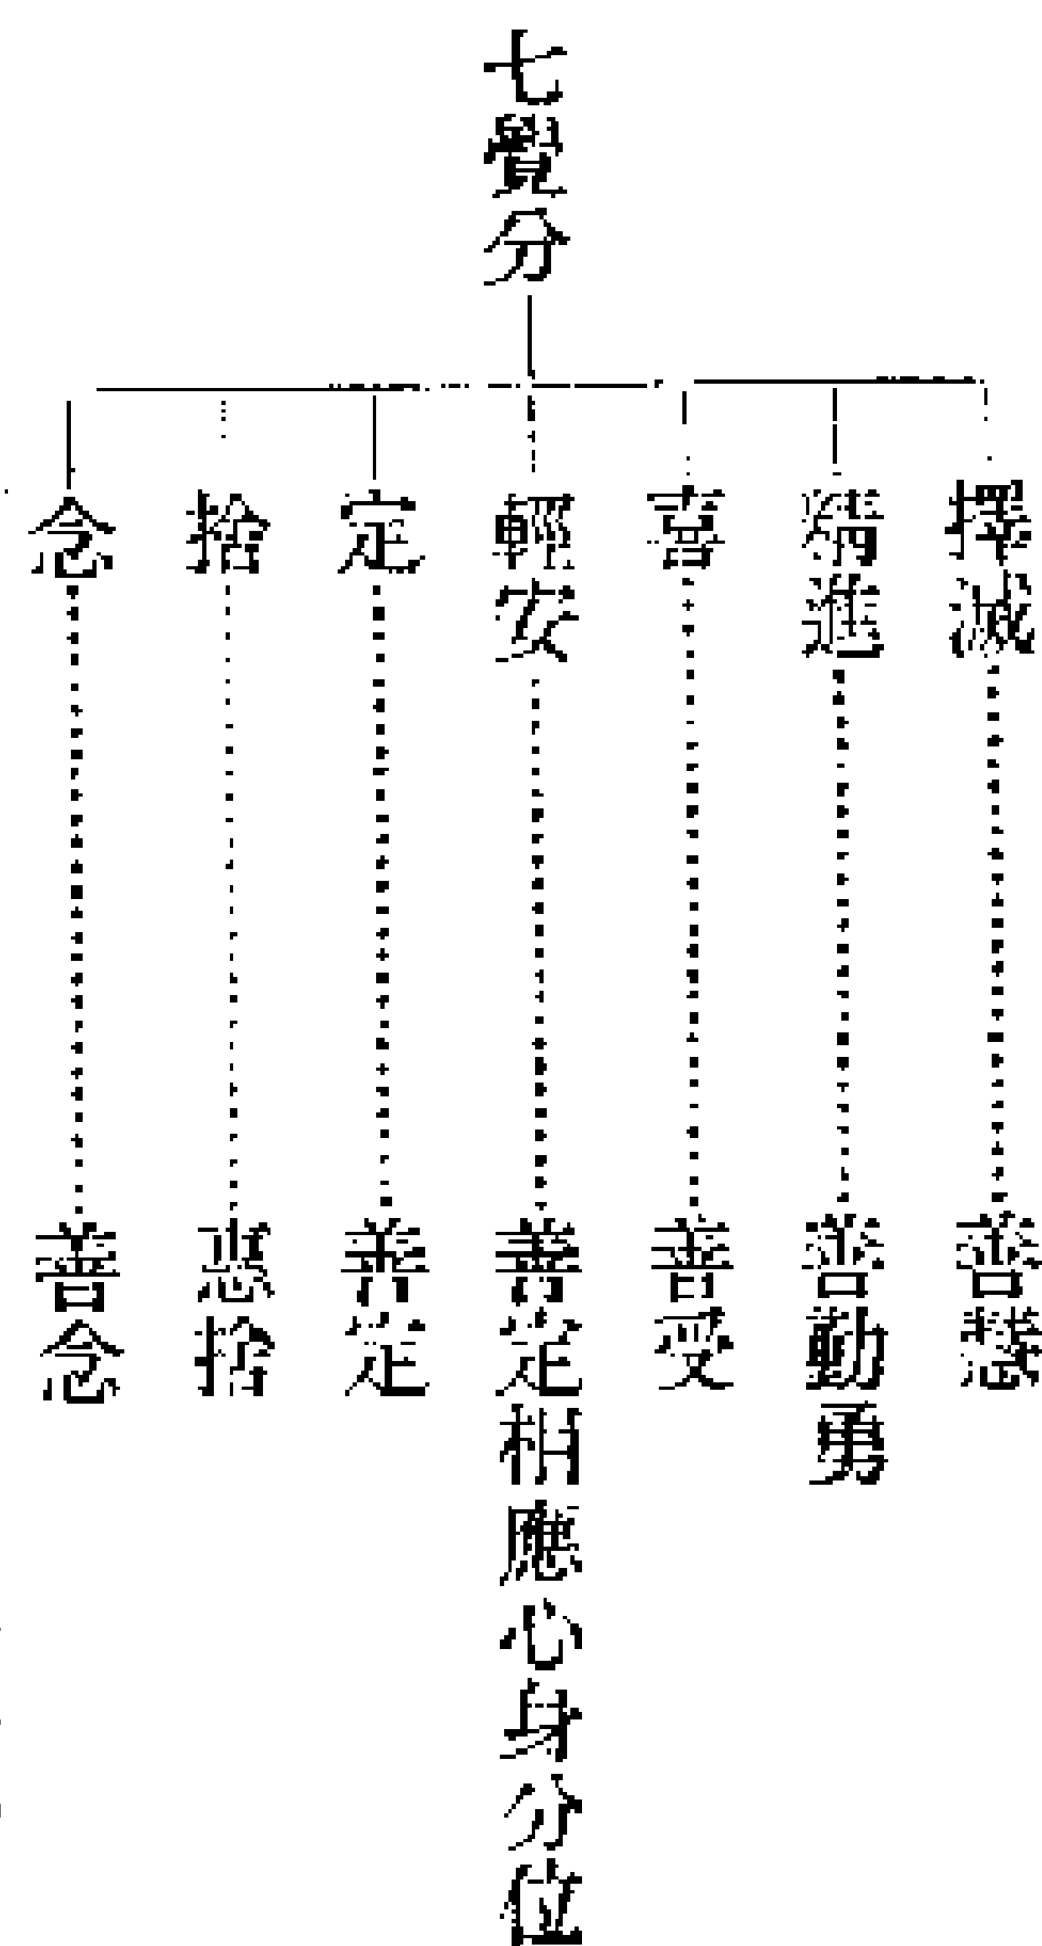 七覺分
擇滅
善慧
精進
善動勇
喜
善受
輕安
善定相應心身分位
定
善定
捨
惠捨
念
善念